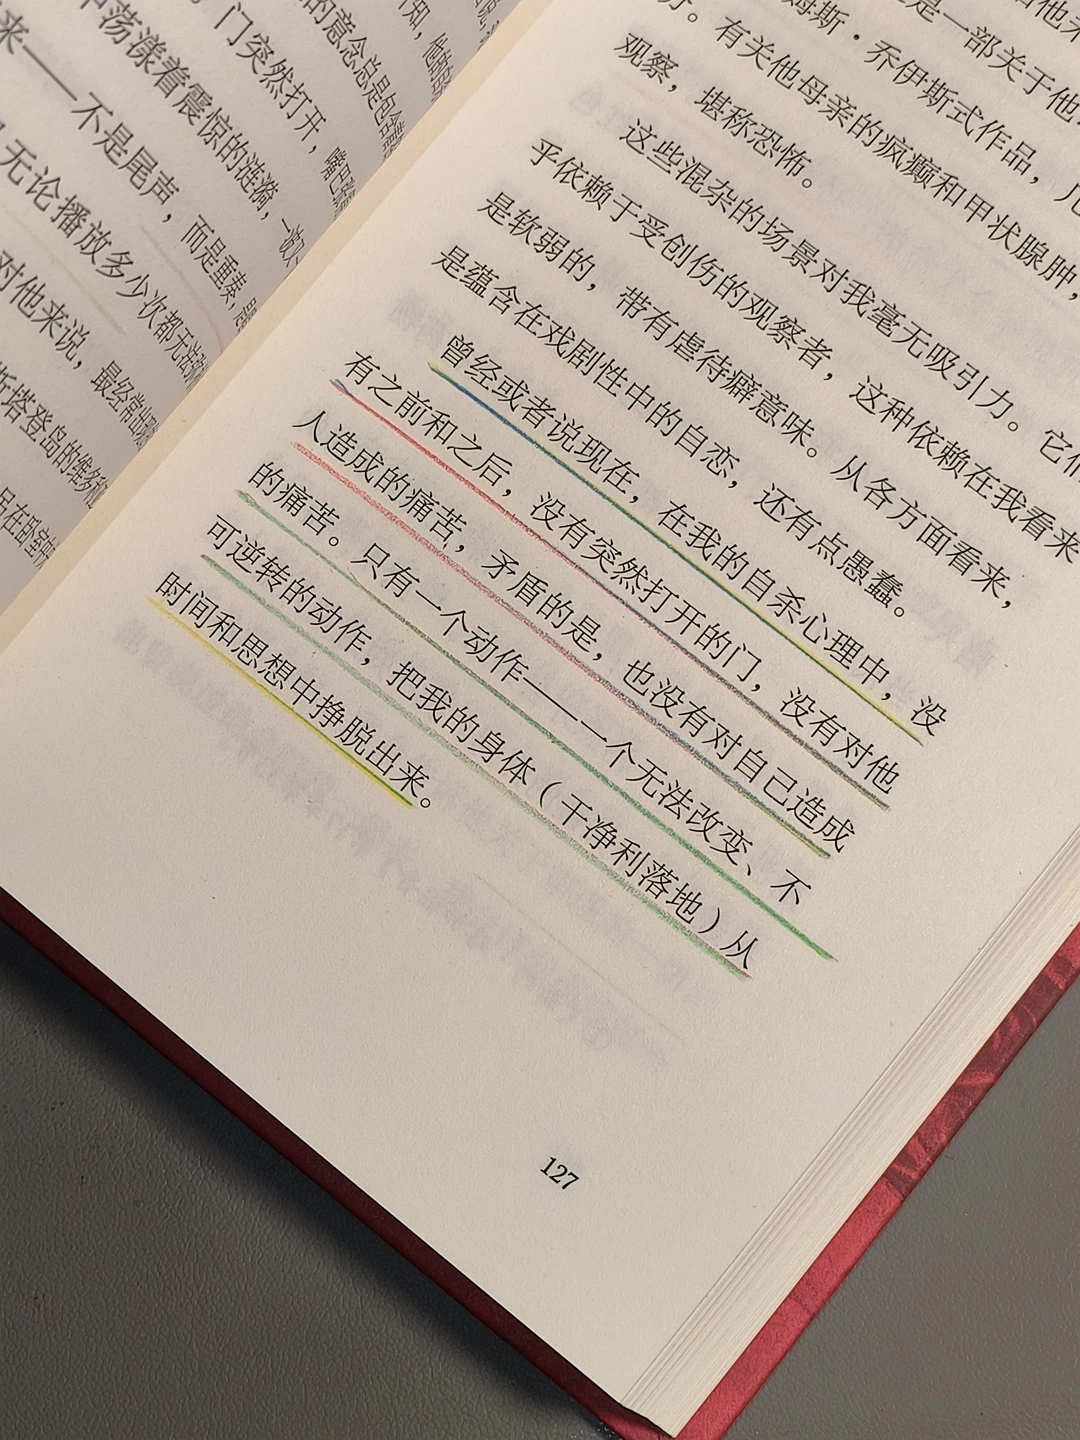 中荡漾着震惊的涟漪，一波又
来——不是尾声，而是重奏，
无论播放多少次都无法
对他来说，最经常出现
斯塔登岛的维务
吕在卧室中
门突然打开，嘴巴张
的意念总是包含着
是一部关于他
姆斯·乔伊斯式作品，几
。有关他母亲的疯癫和甲状腺肿，
观察，堪称恐怖。
这些混杂的场景对我毫无吸引力。它们
乎依赖于受创伤的观察者，这种依赖在我看来
是软弱的，带有虐待癖意味。从各方面看来，
是蕴含在戏剧性中的自恋，还有点愚蠢。
曾经或者说现在，在我的自杀心理中，没
有之前和之后，没有突然打开的门，没有对他
人造成的痛苦，矛盾的是，也没有对自己造成
的痛苦。只有一个动作——一个无法改变、不
可逆转的动作，把我的身体（干净利落地）从
时间和思想中挣脱出来。
127